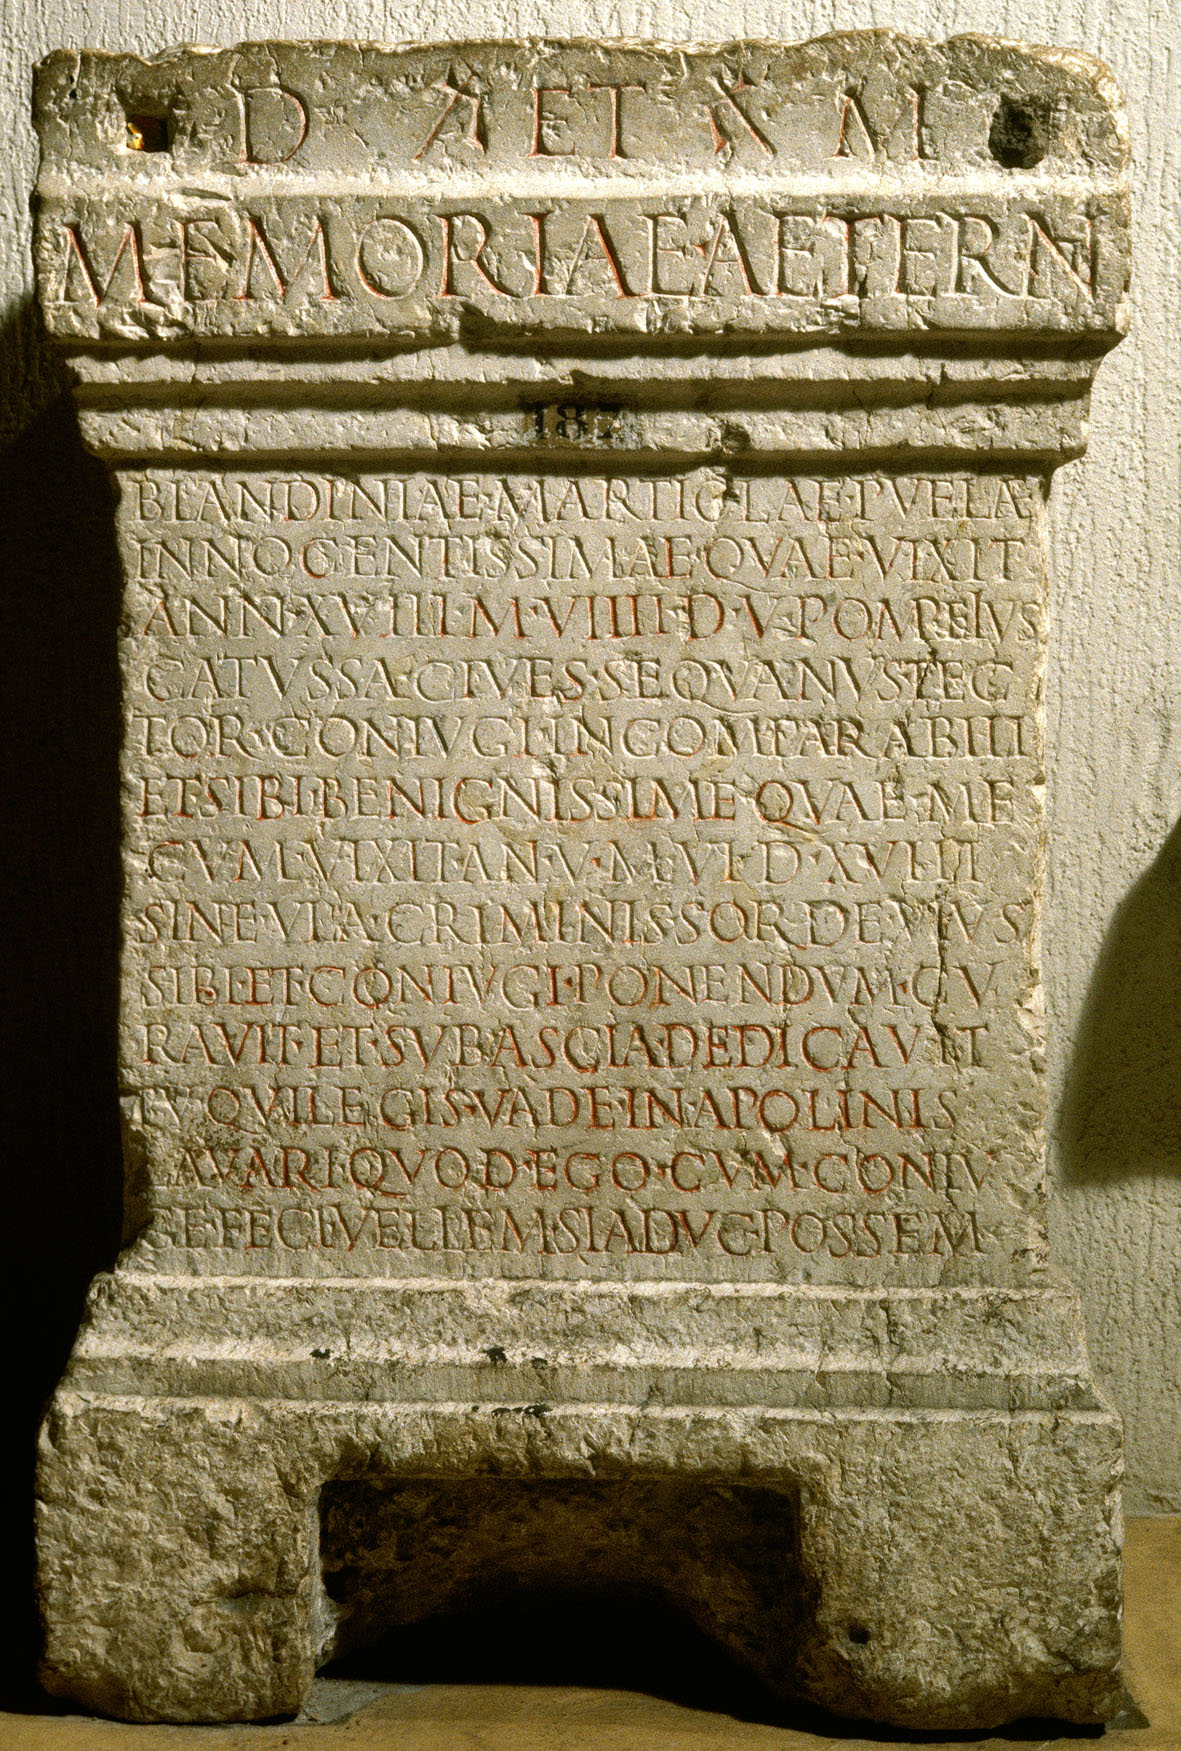 D ET M
MEMORIAE·AETERN
187
BLANDINIAE·MARTIOLAE·PVELLAE
INNOCENTISSIMAE·QVAE·VIXIT
ANN·XVIII·M·VIIII·D·V·POMPEIVS
CATVSSA·CIVES·SEQVANVS·TEC
TOR·CONIVGI·INCOMPARABILI
ET·SIBI·BENIGNISSIME·QVAE·ME
CVM·VIXIT·AN·V·M·VI·D·XVIII
SINE·VLA·CRIMINIS·SORDE·VIVS
SIBI·ET·CONIVGI·PONENDVM·CV
RAVIT·ET·SVB·ASCIA·DEDICAVIT
TV·QVI·LEGIS·VADE·IN·APOLINIS
LAVARI·QVOD·EGO·CVM·CONIV
GE·FECI·VELLEM·SI·ADVC·POSSEM